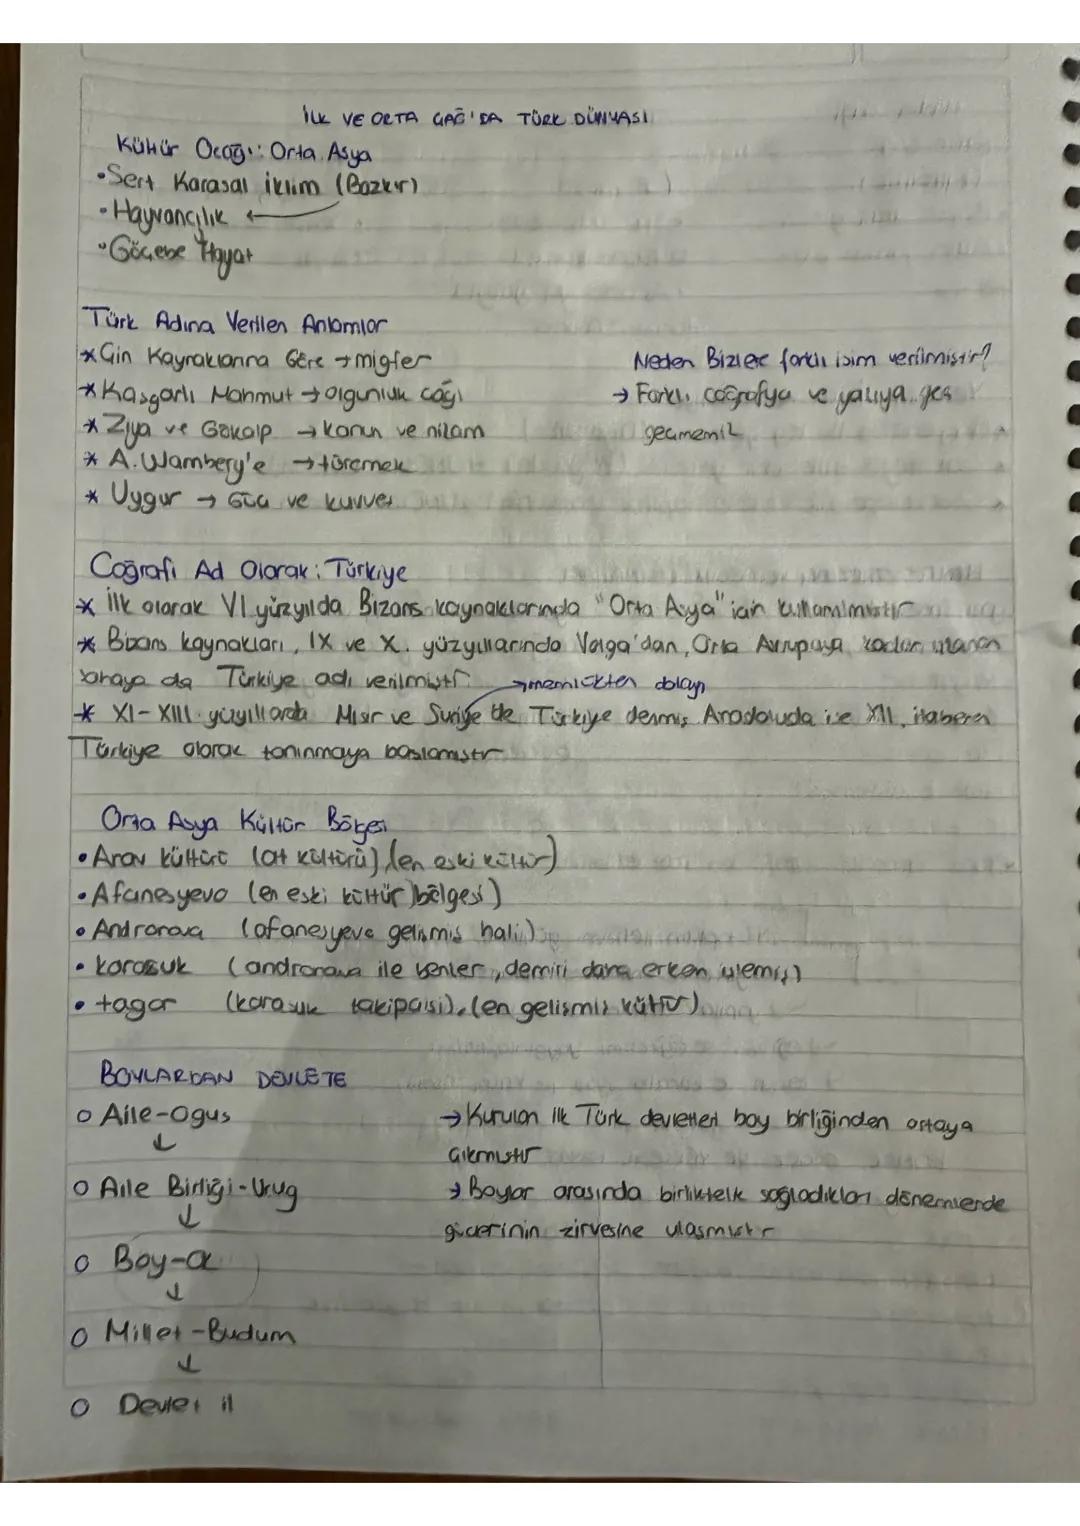 İLK VE ORTA ÇAĞ'DA TÜRK DÜNYASI
Kültür Ocağı: Orta Asya
• Sert Karasal İklim (Bozkır)
• Hayvancılık ←
• Göçebe Hayat
Türk Adına Verilen Anlamlar
* Çin Kaynaklarına Göre → miğfer
* Kaşgarlı Mahmut → olgunluk çağı
* Ziya ve Gökalp → kanun ve nizam
* A. Wambery'e → türemek
* Uygur → Güç ve kuvvet
Neden Bizlere farklı isim verilmiştir?
→ Farklı coğrafya ve yazıya geç
geçmemiz
Coğrafi Ad Olarak: Türkiye
* İlk olarak VI. yüzyılda Bizans kaynaklarında "Orta Asya" için kullanılmıştır
* Bizans kaynakları, IX ve X. yüzyıllarında Volga'dan, Orta Avrupaya kadar uzanan
sahaya da Türkiye adı verilmiştir. → memlükten dolayı
* XI-XIII. yüzyıllarda Mısır ve Suriye'de Türkiye denmiş Anadoluda ise XII. itibaren
Türkiye olarak tanınmaya başlamıştır
Orta Asya Kültür Bölgesi
• Anav kültürü (at kültürü), (en eski kültür)
• Afanesyevo (en eski kültür) bölgesi)
• Andronova (afanesyevo gelişmiş hali)
• karasuk (andronava ile benzer, demiri daha erken işlemiş)
• tagar (karasuk takipçisi), (en gelişmiş kültür)
BOYLARDAN DEVLETE
o Aile-Oguş
↓
o Aile Birliği-Urug
↓
o Boy-
↓
o Millet-Budum
↓
o Devlet il
→ Kurulan ilk Türk devletleri boy birliğinden ortaya
çıkmıştır
→ Boylar arasında birliktelik sağladıkları dönemlerde
güçlerinin zirvesine ulaşmıştır